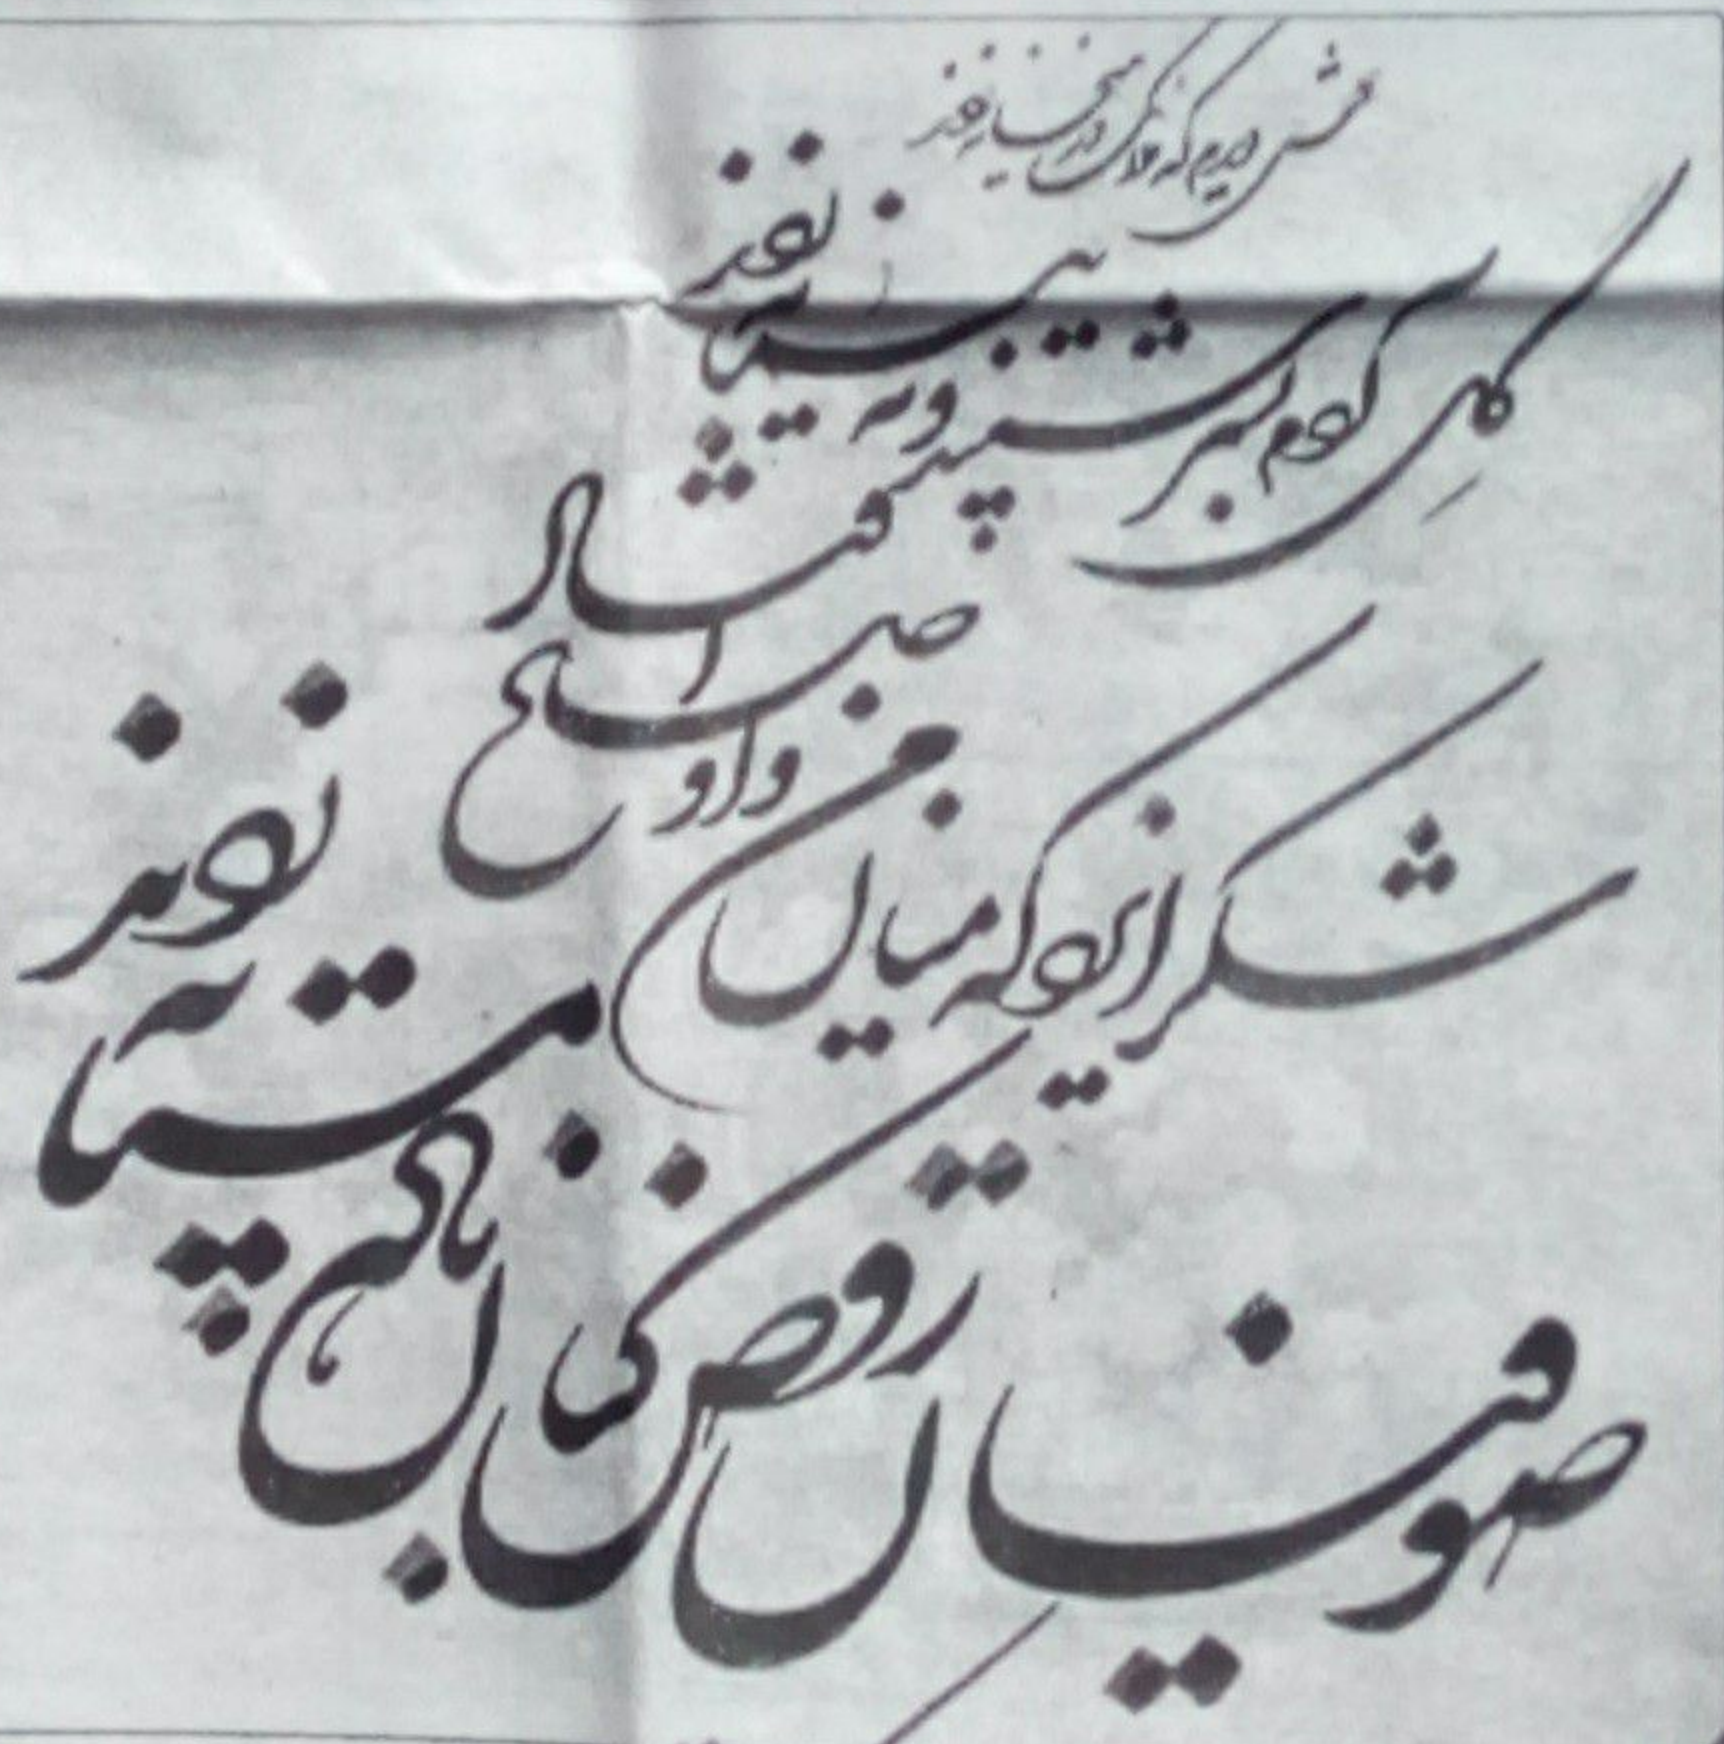 دوش دیدم که ملائک در میخانه زدند
گِل آدم بسرشتند و به پیمانه زدند
شکر ایزد که میان من و او صلح افتاد
صوفیان رقص کنان مستانه زدند